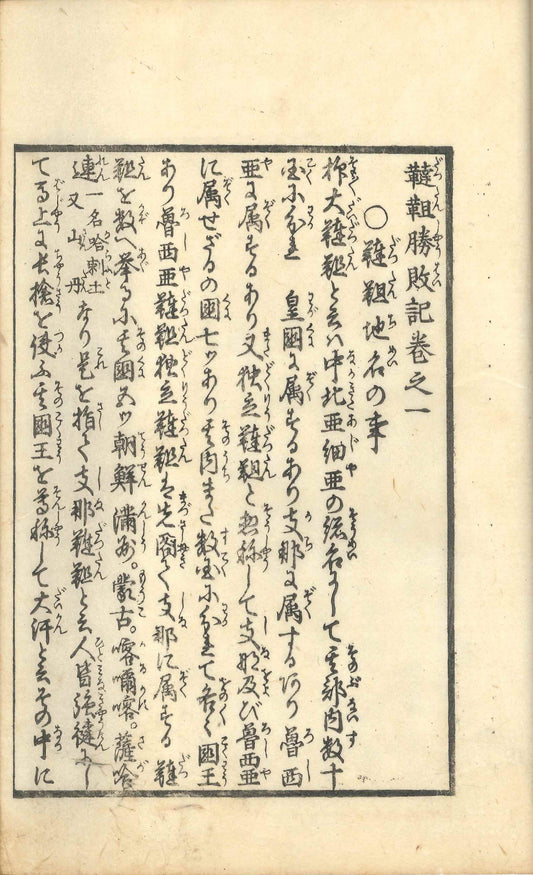 韃靼勝敗記巻之一
○韃靼地名の事
抑大韃靼と云ハ中北亜細亜の総名にして其部内数十
国に分れ 皇国に属するあり支那に属するあり魯西
亜に属するあり又独立韃靼と称して支那及び魯西亜
に属せざるの国七ツあり其内また数国に分れて各〻国王
あり魯西亜韃靼独立韃靼は先閣て支那に属する韃
靼を数へ挙るに其国五ツ朝鮮満州。蒙古。喀爾喀。薩哈
連一名哈剌土又山丹なり是を指て支那韃靼と云人皆強健にし
て馬上に長槍を使ふ其国王を尊称して大汗と云その中に